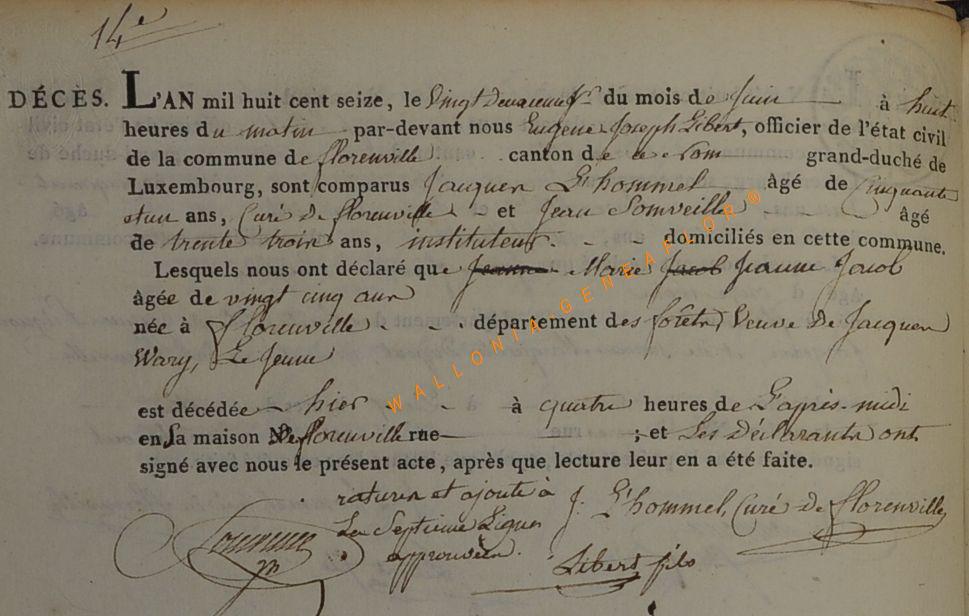 14e
DÉCÈS. L'AN mil huit cent seize, le Vingt Deuxieme Jr du mois de Juin à huit
heures du matin par-devant nous Eugene Joseph Libert, officier de l'état civil
de la commune de florenville canton de ce nom grand-duché de
Luxembourg, sont comparus Jacques L'hommel âgé de Cinquante
et un ans, Curé De florenville et Jean Somveille âgé
de trente trois ans, instituteur. domiciliés en cette commune.
Lesquels nous ont déclaré que Jeanne Marie Jacob Jeanne Jacob
âgée de vingt cinq ans
née à Florenville département des forêts Veuve De Jacques
Wary, Le Jeune
est décédée hier à quatre heures de L'après-midi
en sa maison De florenville rue ; et Les Déclarants ont
signé avec nous le présent acte, après que lecture leur en a été faite.
ratures et ajoute à
La Septieme Lignes
approuvées.
J. L'hommel, Curé De florenville
Libert fils
WALLONIA-GENEAFLOR®